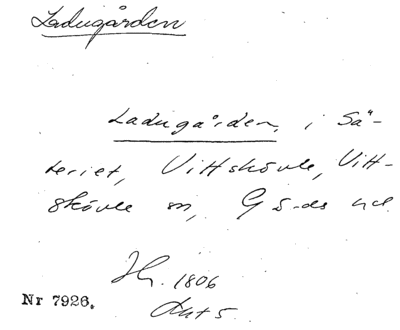 Ladugården
Ladugården, i Sä-
teriet, Vittskövle, Vitt-
skövle sn, Gärds hd.
1806
Akt 5
Nr 7926.